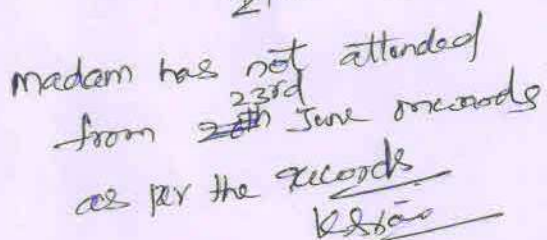 madam has not attended
from 23rd June onwards
as per the records